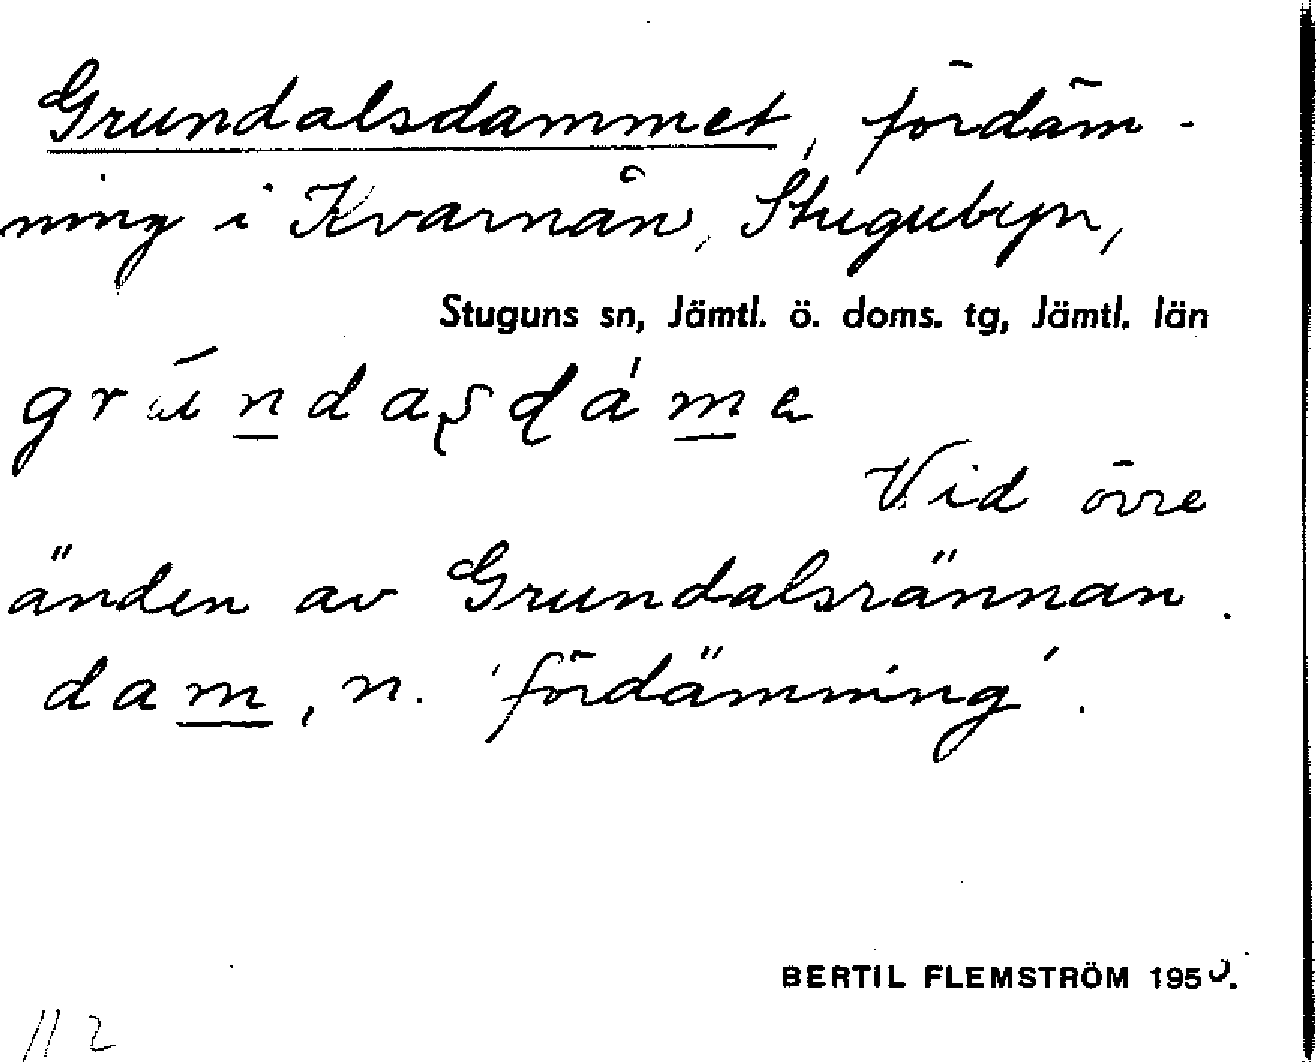 Grundalsdammet, fördäm-
ning i Kvarnån, Stugubyn,
Stuguns sn, Jämtl. ö. doms. tg, Jämtl. län
Vid övre
änden av Grundalsrännan.
dam, n. 'fördämning'.
BERTIL FLEMSTRÖM 1950.
112